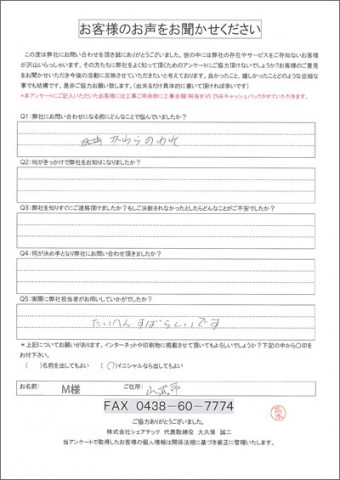 お客様のお声をお聞かせください
この度は弊社にお問い合わせを頂き誠にありがとうございました。世の中には弊社の存在やサービスをご存知ないお客様
が沢山いらっしゃいます。その方たちに弊社をよく知って頂くためのアンケートにご協力頂けないでしょうか?お客様のご意見
をお聞かせいただき今後の活動に反映させていただきたいと考えております。良かったこと、嬉しかったことどのような些細な
事でも結構です。是非ご協力お願い致します。(出来るだけ具体的に書いて頂ければ幸いです)
*本アンケートにご記入いただいたお客様には工事ご用命時に工事金額(税抜き)の2%をキャッシュバックさせていただきます。
Q1:弊社にお問い合わせになる前にどんなことで悩んでいましたか?
かわらのわれ
Q2:何がきっかけで弊社をお知りになりましたか?
Q3:弊社を知りすぐにご連絡頂けましたか?もしご決断されなかったとしたらどんなことがご不安でしたか?
Q4:何が決め手となり弊社にお問い合わせ頂きましたか?
Q5:実際に弊社担当者がお伺いしていかがでしたか?
たいへんすばらしいです
*上記についてお願いがあります。インターネットや印刷物に掲載させて頂いてもよろしいでしょうか?下記の中から〇印を
お付下さい。
( )名前を出してもよい (〇)イニシャルなら出してもよい
お名前: M様 ご住所: 山武市
FAX 0438-60-7774
ご協力ありがとうございました。
株式会社シェアテック 代表取締役 大久保 誠二
当アンケートで取得したお客様の個人情報は関係法規に基づき厳正に管理いたします。